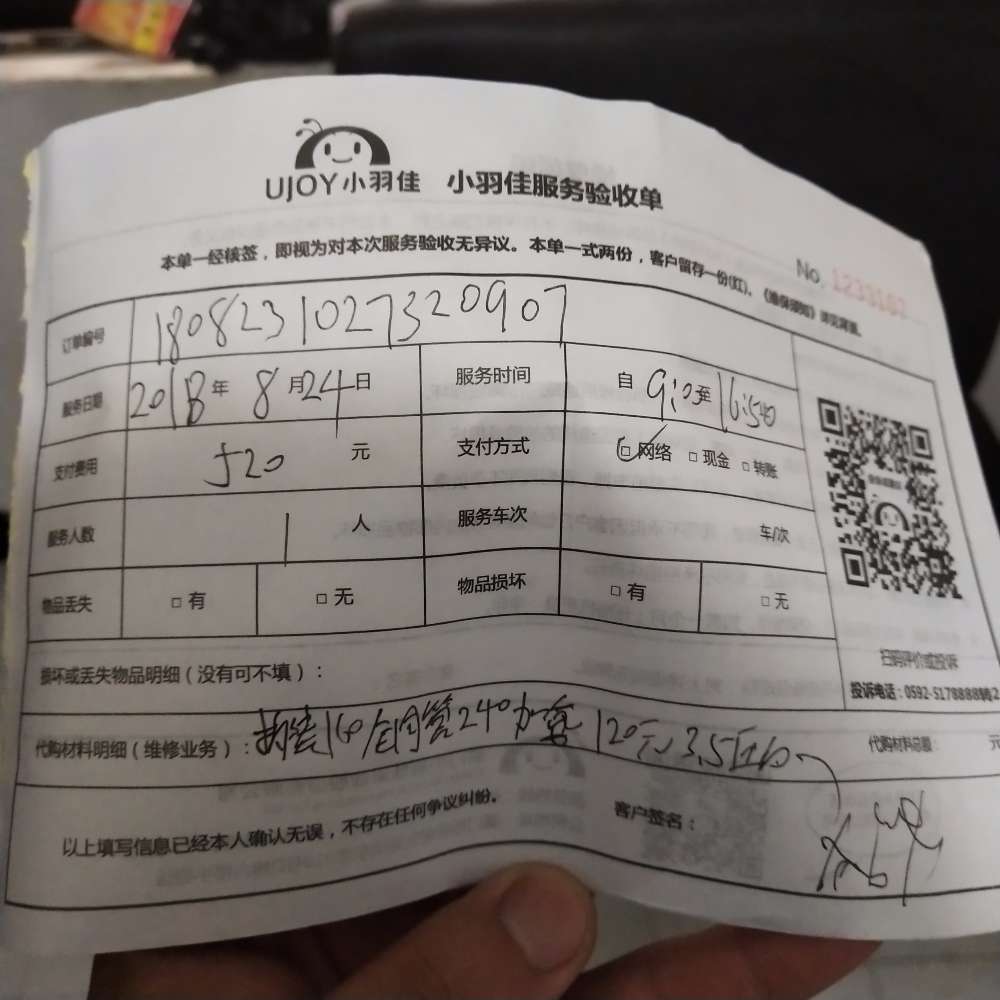 UJOY小羽佳 小羽佳服务验收单
No. 1233107
本单一经核签，即视为对本次服务验收无异议。本单一式两份，客户留存一份(红)、《维保须知》详见背面。
订单编号 1808231027320907
服务日期 2018年 8月24日 服务时间 自 9:0至16:540
支付费用 520 元 支付方式 □网络 □现金 □转账
服务人数 1 人 服务车次 车/次
物品丢失 □有 □无 物品损坏 □有 □无
扫码评价或投诉
损坏或丢失物品明细（没有可不填）：
投诉电话：0592-5178888
代购材料明细（维修业务）：拆装160 铜管240 加 120元 3.5 代购材料总额： 元
以上填写信息已经本人确认无误，不存在任何争议纠纷。 客户签名：